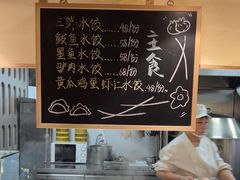 三鲜水饺......48/份
鲅鱼水饺......58/份
墨鱼水饺......58/份
驴肉水饺......68/份
黄瓜鸡蛋虾仁水饺..48/份
主食